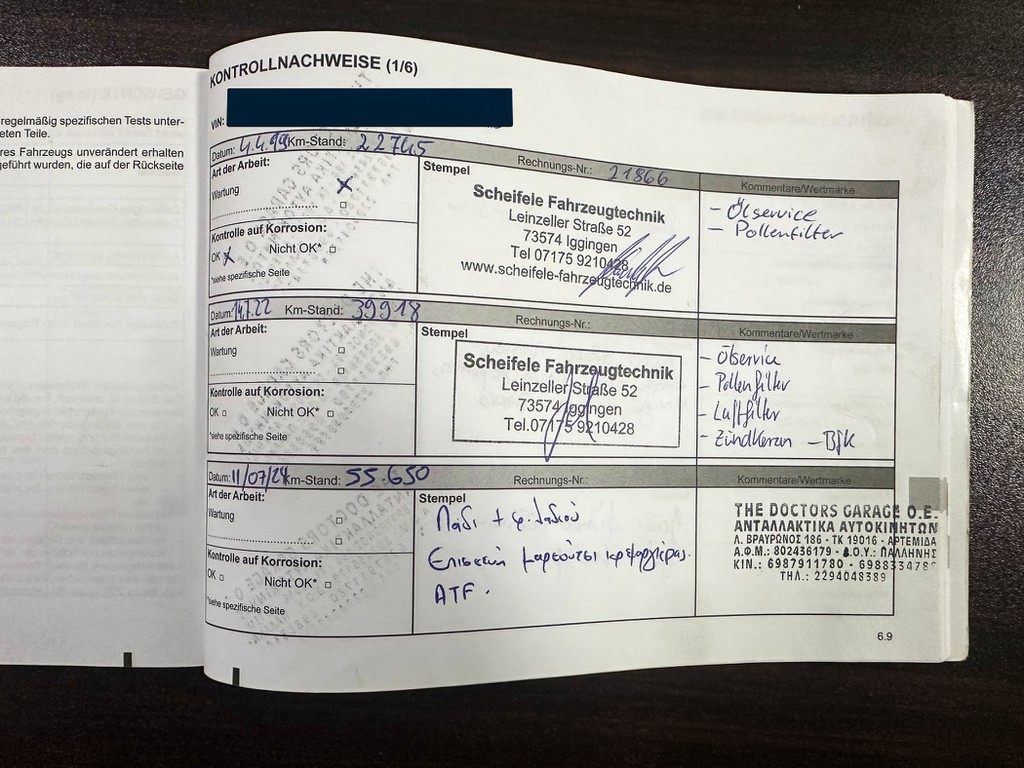 regelmäßig spezifischen Tests unter-
eten Teile.
res Fahrzeugs unverändert erhalten
geführt wurden, die auf der Rückseite
KONTROLLNACHWEISE (1/6)
VIN:
Datum: 4.4.99 Km-Stand: 22745 Rechnungs-Nr.: 21866
Art der Arbeit:
Wartung
Kontrolle auf Korrosion:
OK Nicht OK*
*siehe spezifische Seite
Stempel
Scheifele Fahrzeugtechnik
Leinzeller Straße 52
73574 Iggingen
Tel 07175 9210428
www.scheifele-fahrzeugtechnik.de
Kommentare/Wertmarke
- Ölservice
- Pollenfilter
Datum: 14.7.22 Km-Stand: 39918 Rechnungs-Nr.:
Art der Arbeit:
Wartung
Kontrolle auf Korrosion:
OK Nicht OK*
*siehe spezifische Seite
Stempel
Scheifele Fahrzeugtechnik
Leinzeller Straße 52
73574 Iggingen
Tel.07175 9210428
Kommentare/Wertmarke
- Ölservice
- Pollenfilter
- Luftfilter
- Zündkerzen - Bfk
Datum: 11/07/24 Km-Stand: 55.650 Rechnungs-Nr.:
Art der Arbeit:
Wartung
Kontrolle auf Korrosion:
OK Nicht OK*
*siehe spezifische Seite
Stempel
Λάδι + φ. λαδιού
Επισκευή
ATF.
Kommentare/Wertmarke
THE DOCTORS GARAGE O.E.
ΑΝΤΑΛΛΑΚΤΙΚΑ ΑΥΤΟΚΙΝΗΤΩΝ
Λ. ΒΡΑΥΡΩΝΟΣ 186 - ΤΚ 19016 - ΑΡΤΕΜΙΔΑ
Α.Φ.Μ.: 802436179 - Δ.Ο.Υ.: ΠΑΛΛΗΝΗΣ
ΚΙΝ.: 6987911780 -
ΤΗΛ.: 2294048389
6.9